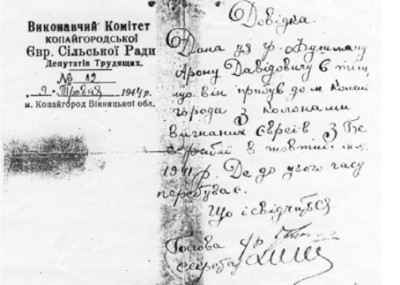 Виконавчий Комітет
КОПАЙГОРОДСЬКОЇ
Євр. Сільської Ради
Депутатів Трудящих.
№ 12
9. Травня 1944 р.
м. Копайгород Вінницької обл.
Довідка.
Дана ця гр.
Арону Давідовичу в тому,
що він прибув до м. Копай
города з колонами
вигнаних євреїв з Бе
сарабії в жовтні
1941 р. Де до цього часу
перебуває.
Що і свідчиться
Голова
Секретар